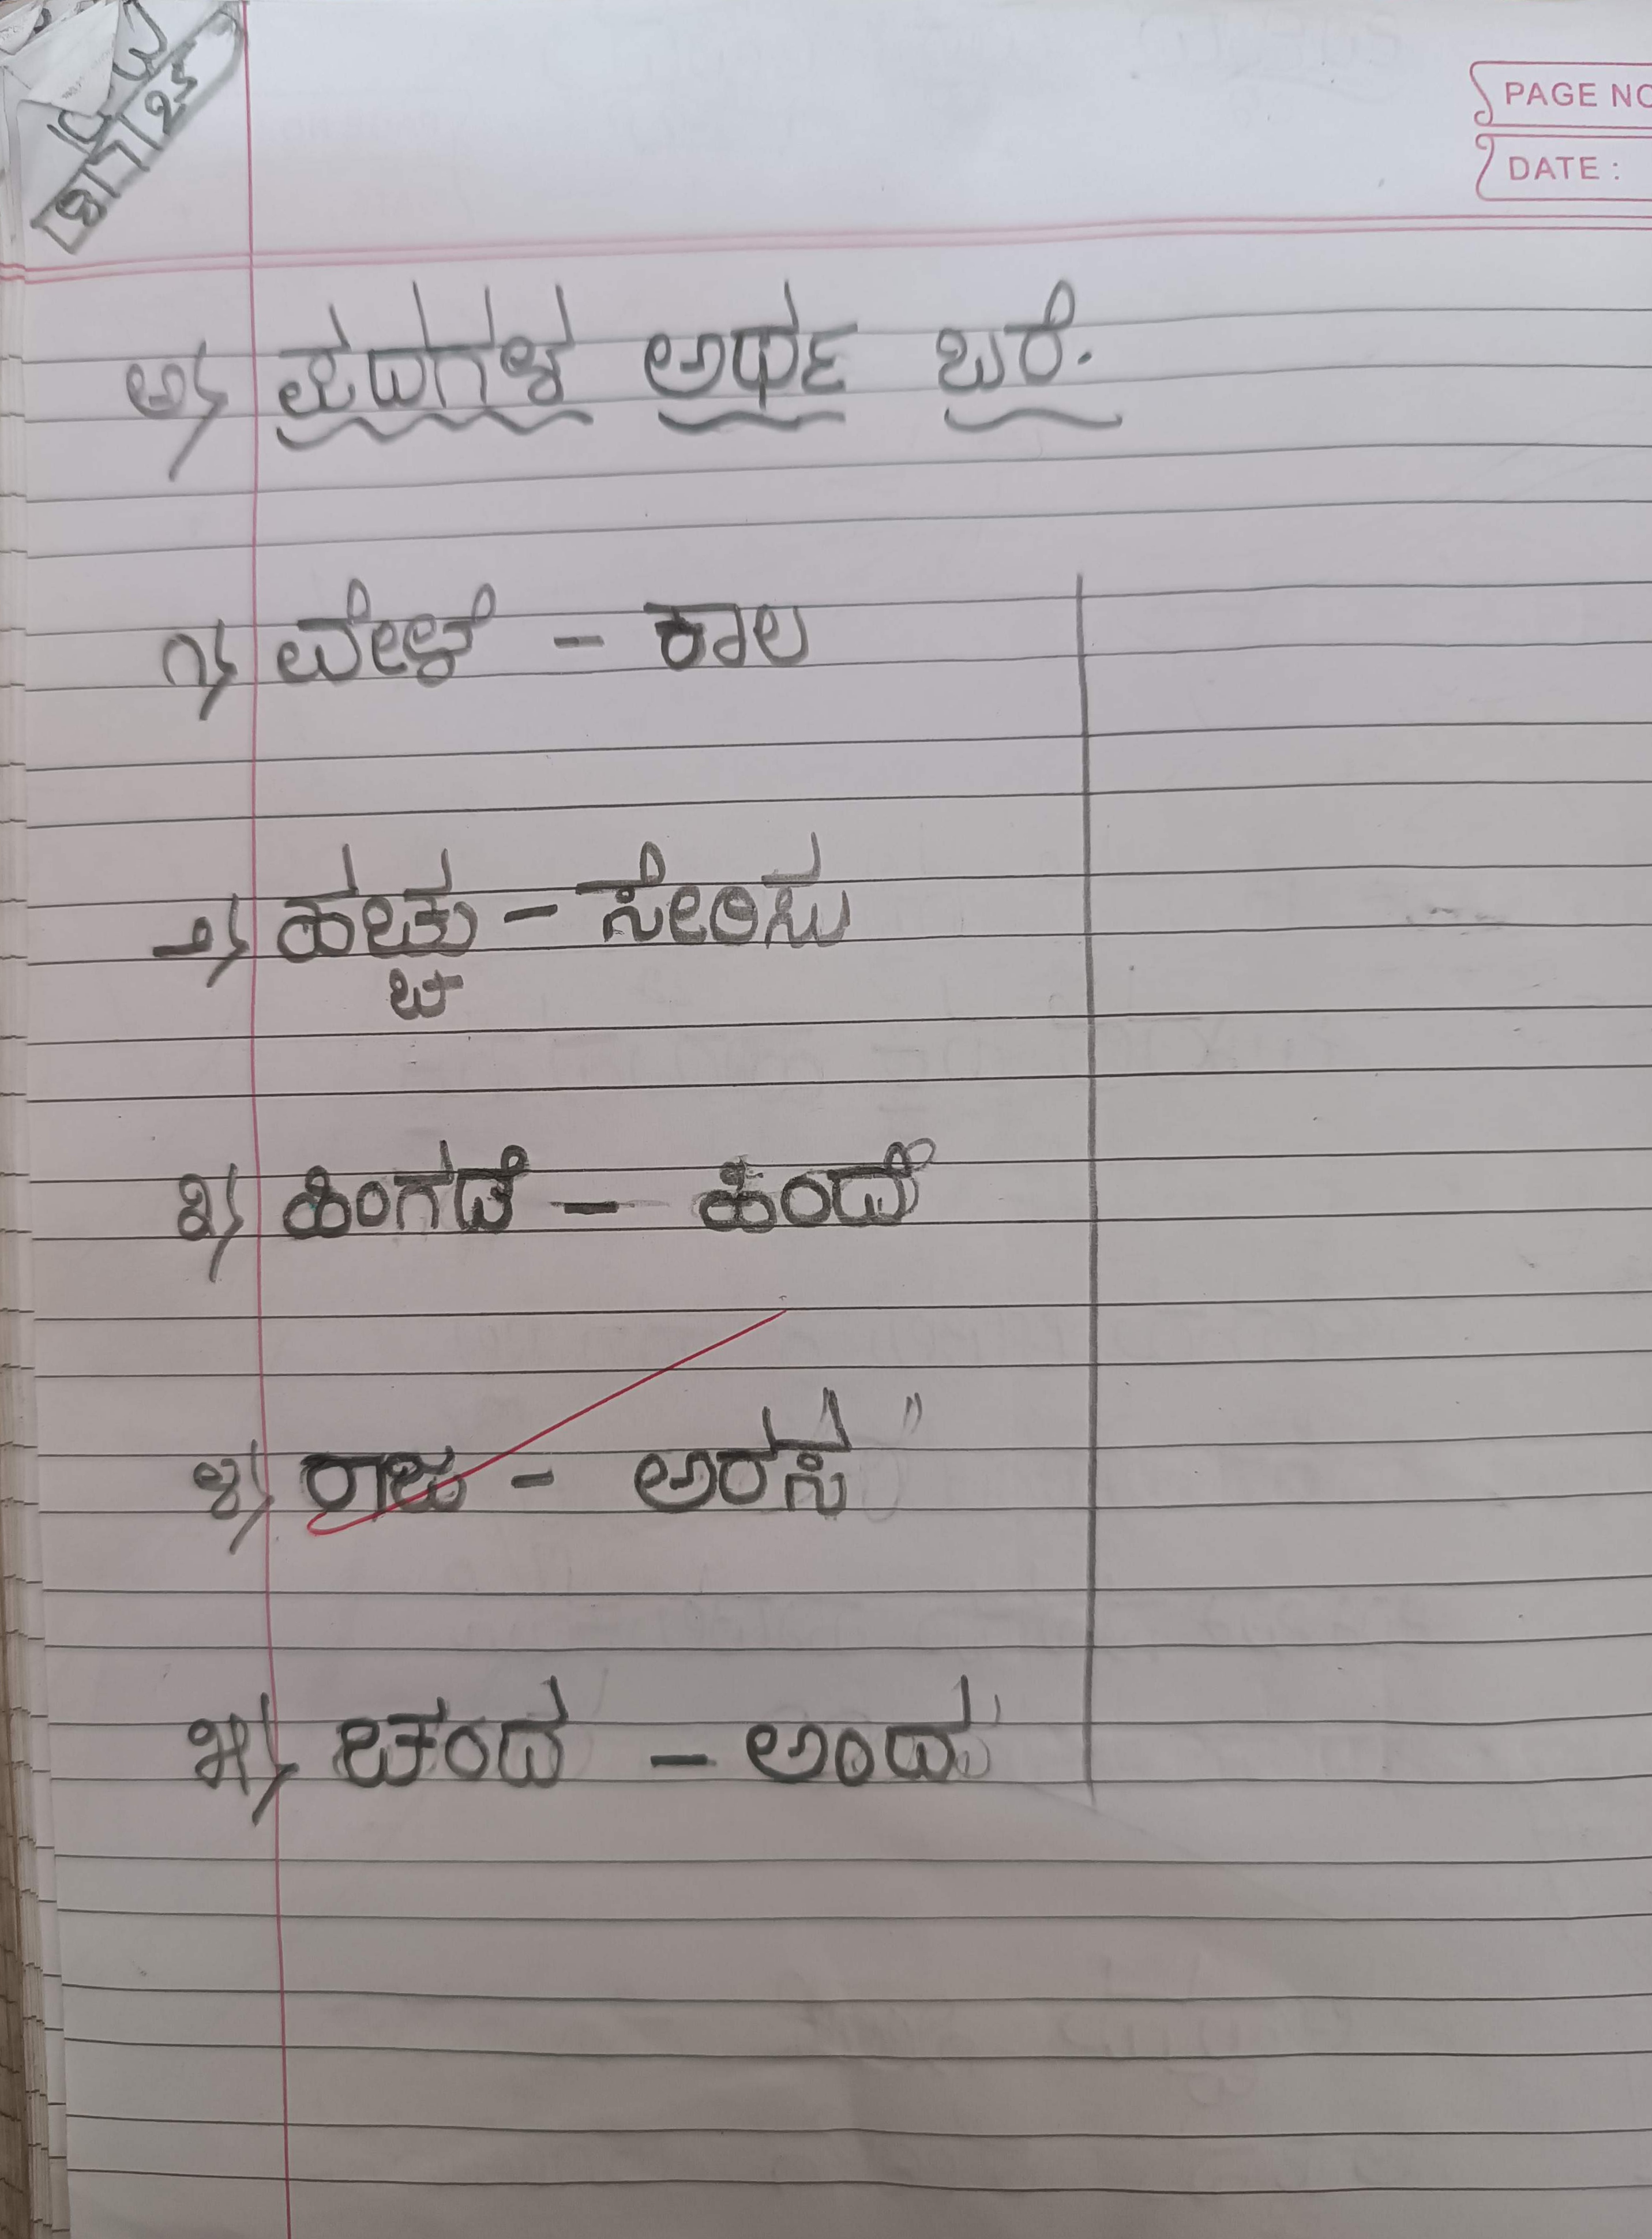 CW
8/7/25
PAGE NO
DATE :
ಅ) ಪದಗಳ ಅರ್ಥ ಬರೆ.
೧) ವೇಳೆ - ಕಾಲ
೨) ಹಚ್ಚು - ಸೇರಿಸು
೩) ಹಿಂಗಡೆ - ಹಿಂದೆ
೪) ರಾಜ - ಅರಸ
೫) ಚಂದ - ಅಂದ